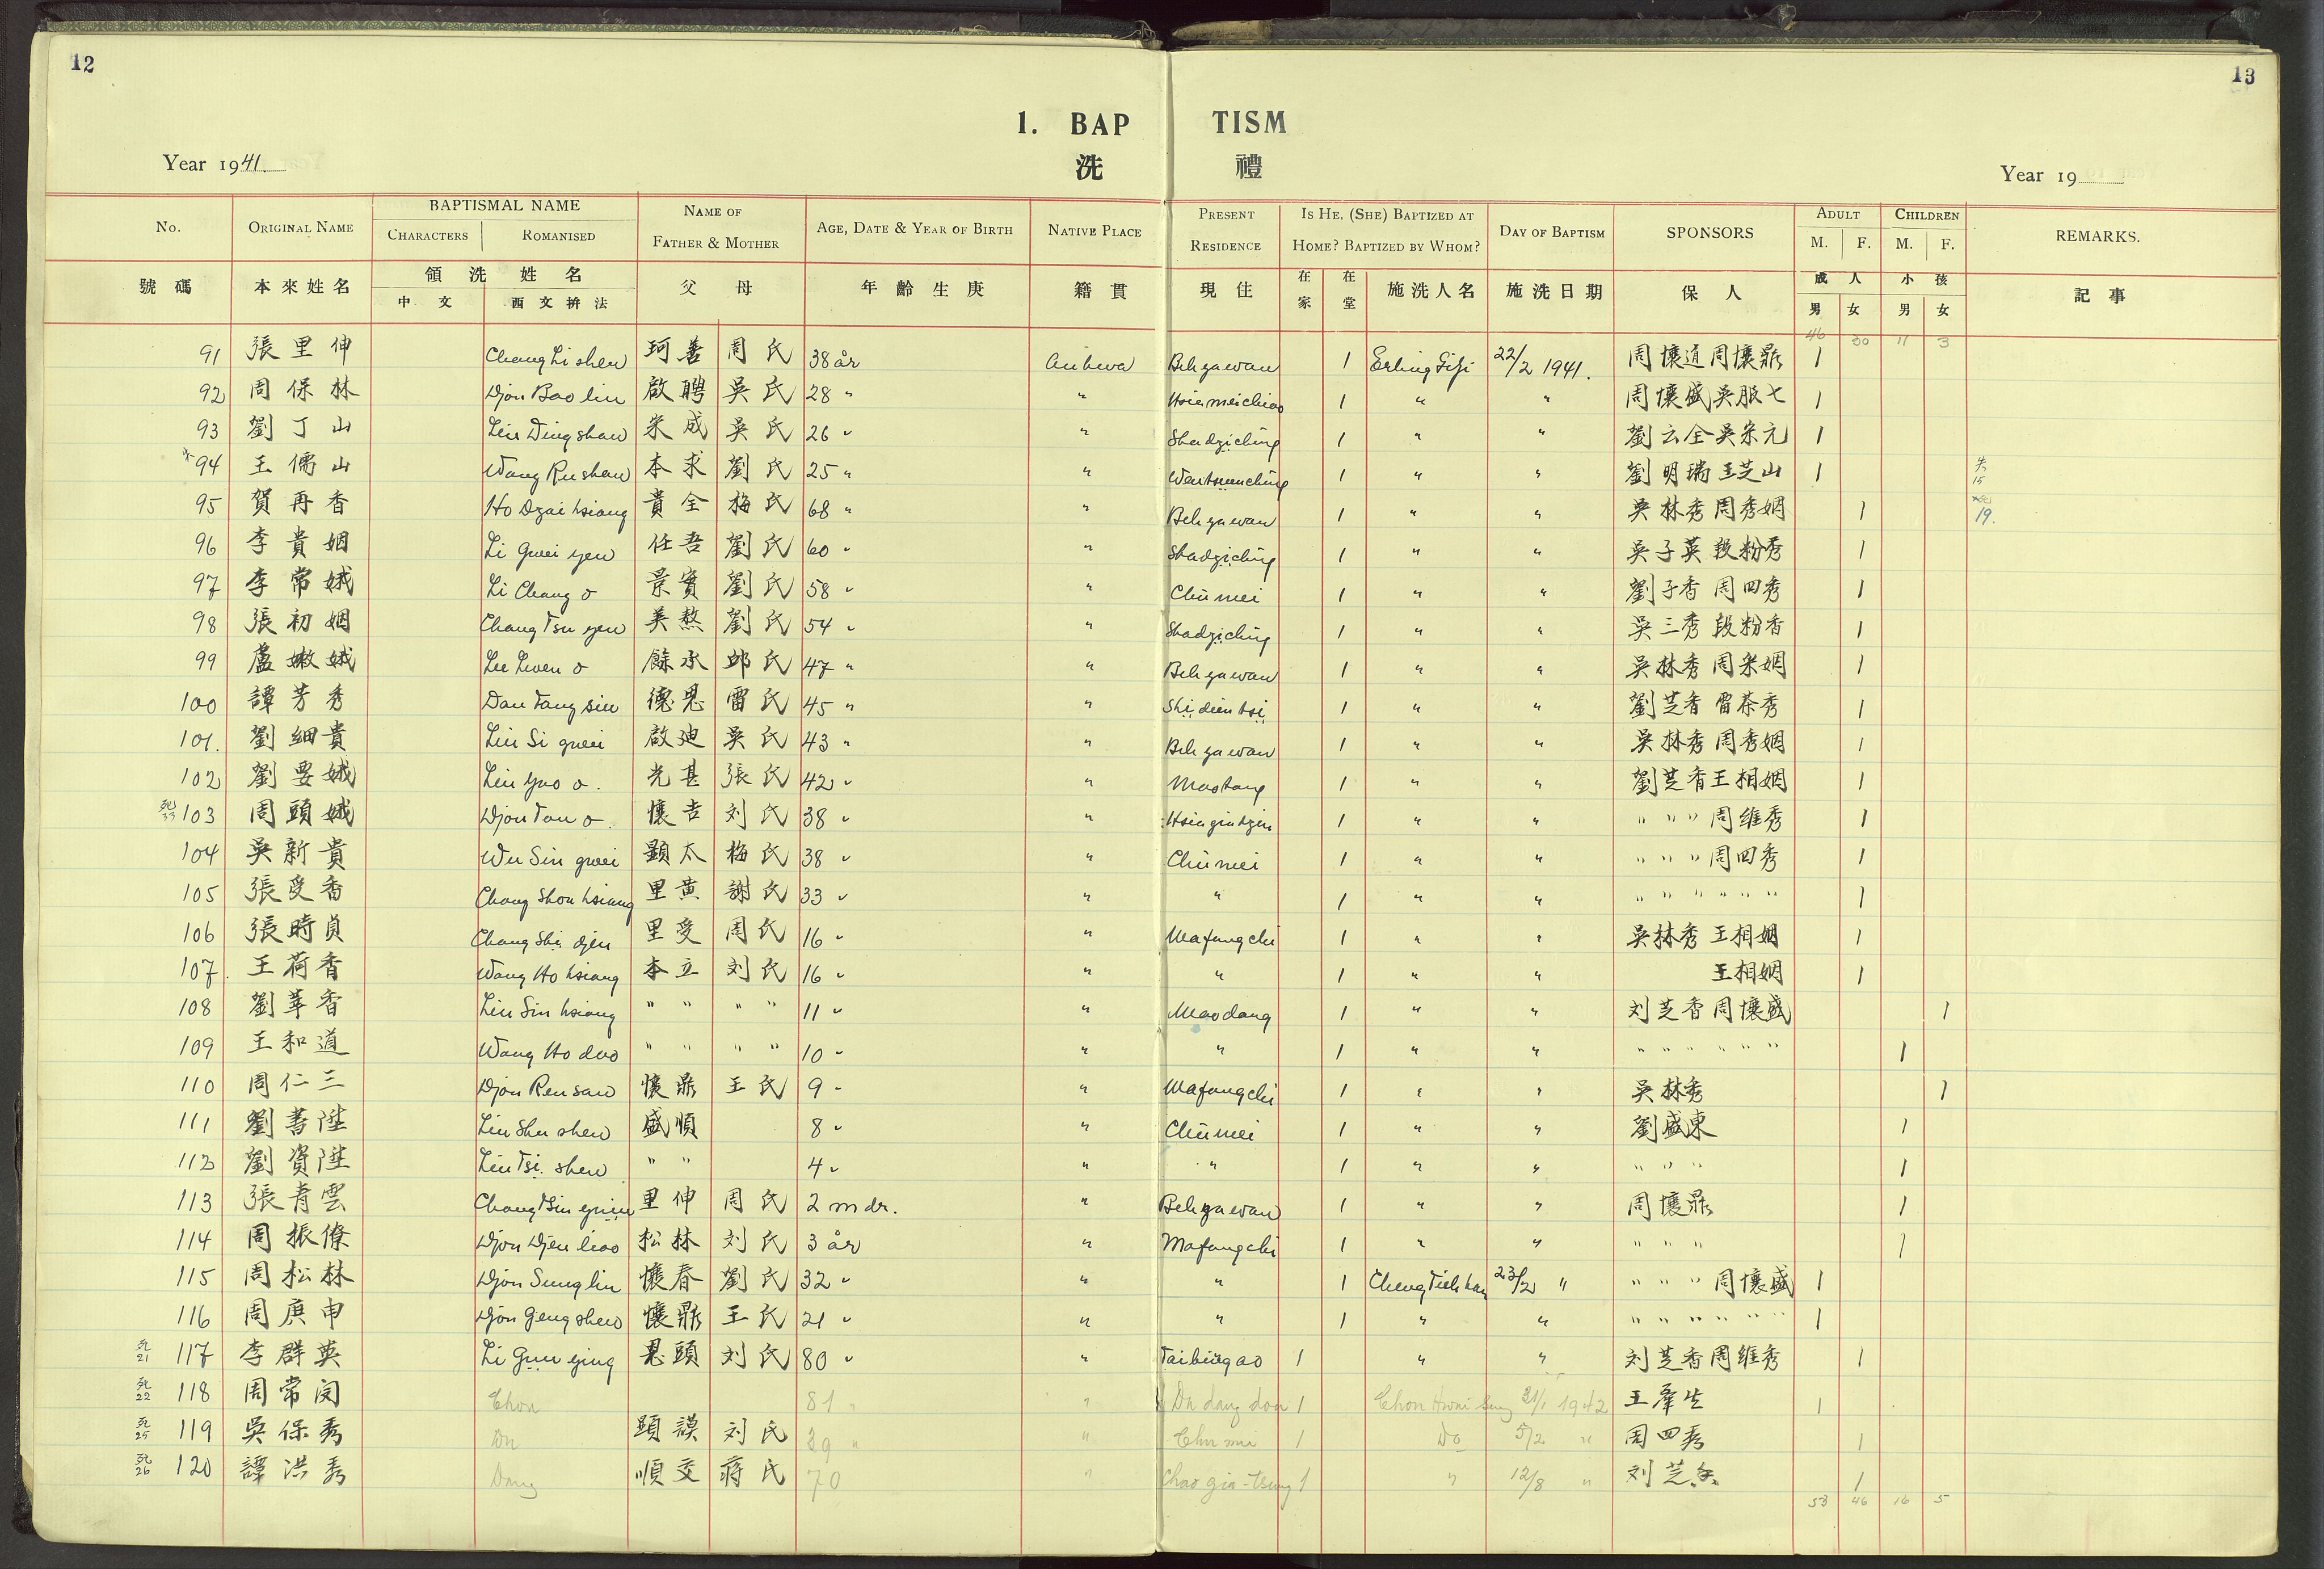 12
13
1. BAP TISM
洗 禮
Year 1941.
Year 19
No. ORIGINAL NAME BAPTISMAL NAME NAME OF FATHER & MOTHER AGE, DATE & YEAR OF BIRTH NATIVE PLACE PRESENT RESIDENCE IS HE, (SHE) BAPTIZED AT HOME? BAPTIZED BY WHOM? DAY OF BAPTISM SPONSORS ADULT CHILDREN REMARKS.
CHARACTERS ROMANISED M. F. M. F.
號碼 本來姓名 領洗姓名 父母 年齡生庚 籍貫 現住 在家 在堂 施洗人名 施洗日期 保人 成人 小孩 記事
中文 西文拚法 男 女 男 女
46 30 11 3
91 張里伸 Chang Li shen 珂善 周氏 38 år Anhwa Behyawan 1 Erling Gifi 22/2 1941. 周懷道周懷鼎 1
92 周保林 Djou Bao lin 啟聘 吳氏 28 " " Hsiameichiao 1 " " 周懷盛吳服七 1
93 劉丁山 Liu Ding shan 宋成 吳氏 26 " " Shadziching 1 " " 劉云全吳宋元 1
94 王儒山 Wang Ru shan 本求 劉氏 25 " " 1 " " 劉明瑞王芝山 1
95 賀再香 Ho Dzai hsiang 貴全 梅氏 68 " " Behyawan 1 " " 吳林秀周秀姻 1 19.
96 李貴姻 Li Gwei yen 任吾 劉氏 60 " " Shadziching 1 " " 吳子英段粉秀 1
97 李常娥 Li Chang o 景實 劉氏 58 " " Chü mei 1 " " 劉子香周四秀 1
98 張初姻 Chang Tsu yen 美熬 劉氏 54 " " Shadziching 1 " " 吳三秀段粉香 1
99 盧嫩娥 Lu Lwen o 餘承 邱氏 47 " " Behyawan 1 " " 吳林秀周宋姻 1
100 譚芳秀 Dan Fang siu 德恩 雷氏 45 " " Shi dien tsi 1 " " 劉芝香雷茶秀 1
101. 劉細貴 Liu Si gwei 啟廸 吳氏 43 " " Behyawan 1 " " 吳林秀周秀姻 1
102 劉要娥 Liu Yao o. 光甚 張氏 42 " " Maotang 1 " " 劉芝香王相姻 1
死 33 103 周頭娥 Djou Tou o. 懷吉 刘氏 38 " " 1 " " " " " 周維秀 1
104 吳新貴 Wu Sin gwei 顯太 梅氏 38 " " Chü mei 1 " " " " " 周四秀 1
105 張受香 Chang Shou hsiang 里黃 謝氏 33 " " " 1 " " " " " " " " 1
106 張時貞 Chang Shi djen 里受 周氏 16 " " Mafangchi 1 " " 吳林秀王相姻 1
107. 王荷香 Wang Ho hsiang 本立 刘氏 16 " " " 1 " " 王相姻 1
108 劉莘香 Liu Sin hsiang " " " " 11 " " Maodang 1 " " 刘芝香周懷盛 1
109 王和道 Wang Ho dao " " " " 10 " " " 1 " " " " " " " " 1
110 周仁三 Djou Ren san 懷鼎 王氏 9 " " Mafangchi 1 " " 吳林秀 1
111 劉書陞 Liu Shu shen 盛順 8 " " Chü mei 1 " " 劉盛東 1
112 劉資陞 Liu Tsi shen " " 4 " " " 1 " " " " " 1
113 張青雲 Chang Tsin yuin 里伸 周氏 2 mdr. " Behyawan 1 " " 周懷鼎 1
114 周振僚 Djou Djen liao 松林 刘氏 3 år " Mafangchi 1 " " " " " 1
115 周松林 Djou Sung lin 懷春 劉氏 32 " " " 1 Cheng Tieh han 23/2 " " " " 周懷盛 1
116 周庚申 Djou Geng shen 懷鼎 王氏 21 " " " 1 " " " " " " " " 1
死 21 117 李群英 Li Gün ying 恩頭 刘氏 80 " " Taibingao 1 " " 刘芝香周維秀 1
死 22 118 周常闵 Chou 81 " " Du dang dou 1 Chou Hwai Seng 31/1 1942 王羣生 1
死 25 119 吳保秀 Du 顕謨 刘氏 39 " " Chu mei 1 Do 5/2 " 周四秀 1
死 26 120 譚洪秀 Dang 順交 蒋氏 70 " Chao gia-tsung 1 " 12/8 " 刘芝香 1
53 46 16 5